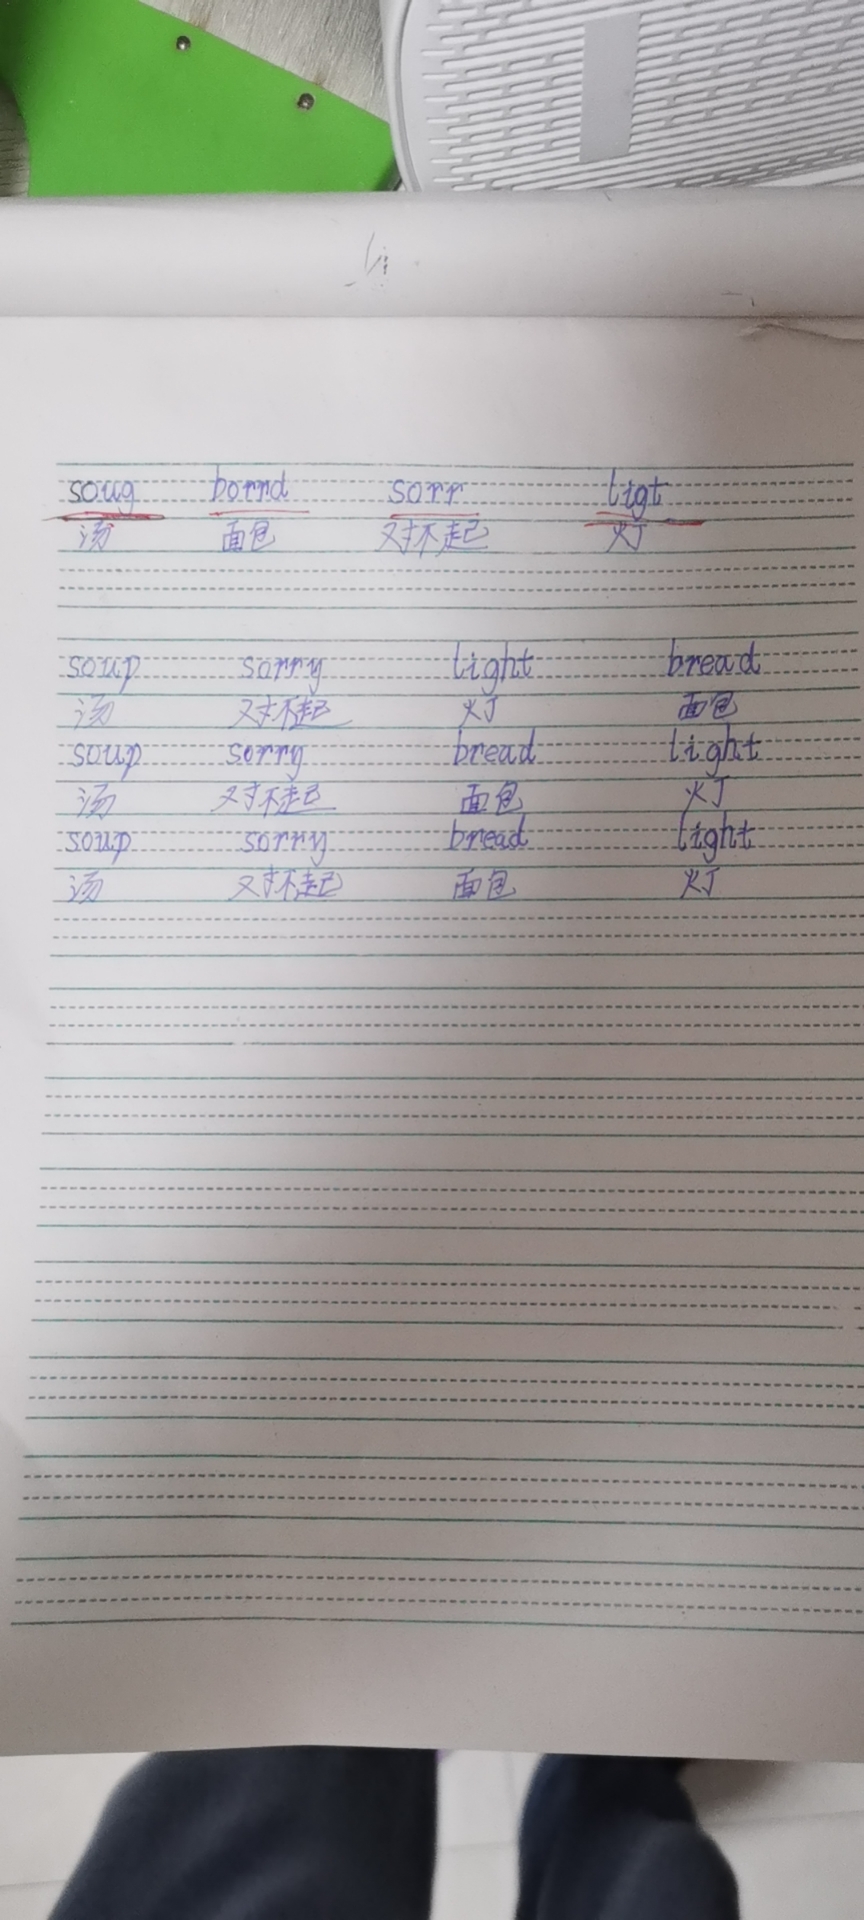 soug borrd sorr ligt
汤 面包 对不起 灯
soup sorry light bread
汤 对不起 灯 面包
soup sorry bread light
汤 对不起 面包 灯
soup sorry bread light
汤 对不起 面包 灯